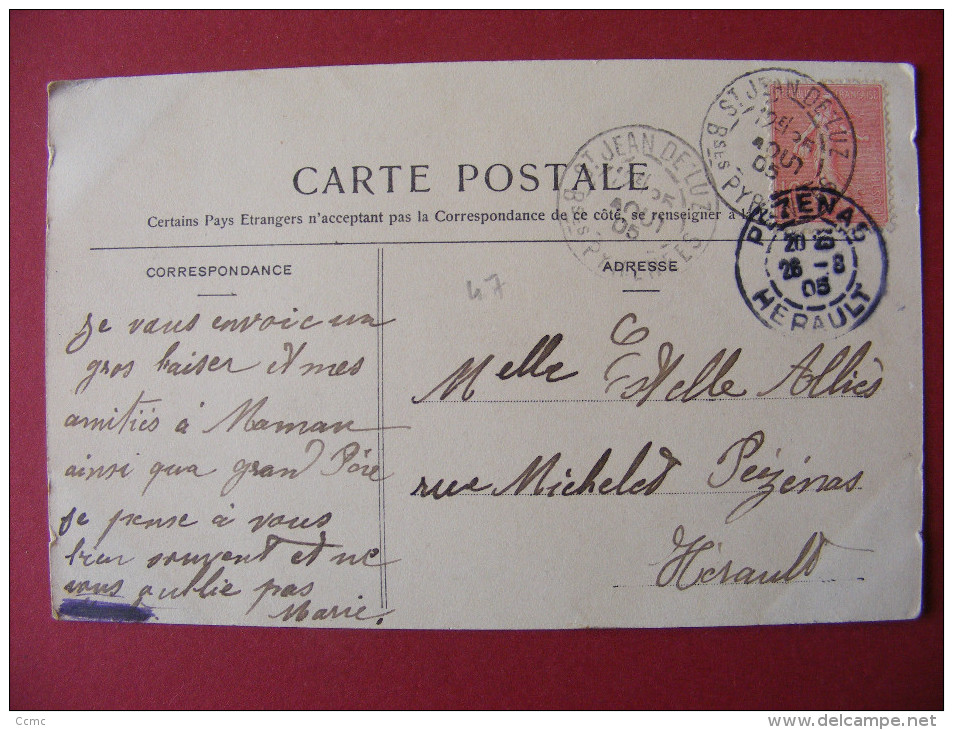 CARTE POSTALE
Certains Pays Etrangers n'acceptent pas la Correspondance de ce côté, se renseigner à la
CORRESPONDANCE
Je vous envoie un
gros baiser et mes
amitiés à Maman
ainsi qua grand Père
Je pense à vous
bien souvent et ne
vous oublie pas
Marie.
ADRESSE
47
Melle Estelle Alliès
rue Michelet Pézénas
Hérault
ST JEAN DE LUZ
25
AOUT
05
Bses PYRENEES
ST JEAN DE LUZ
12E 25
AOUT
05
Bses PYR
PEZENAS
20
26 - 8
05
HERAULT
Ccmc
www.delcampe.net